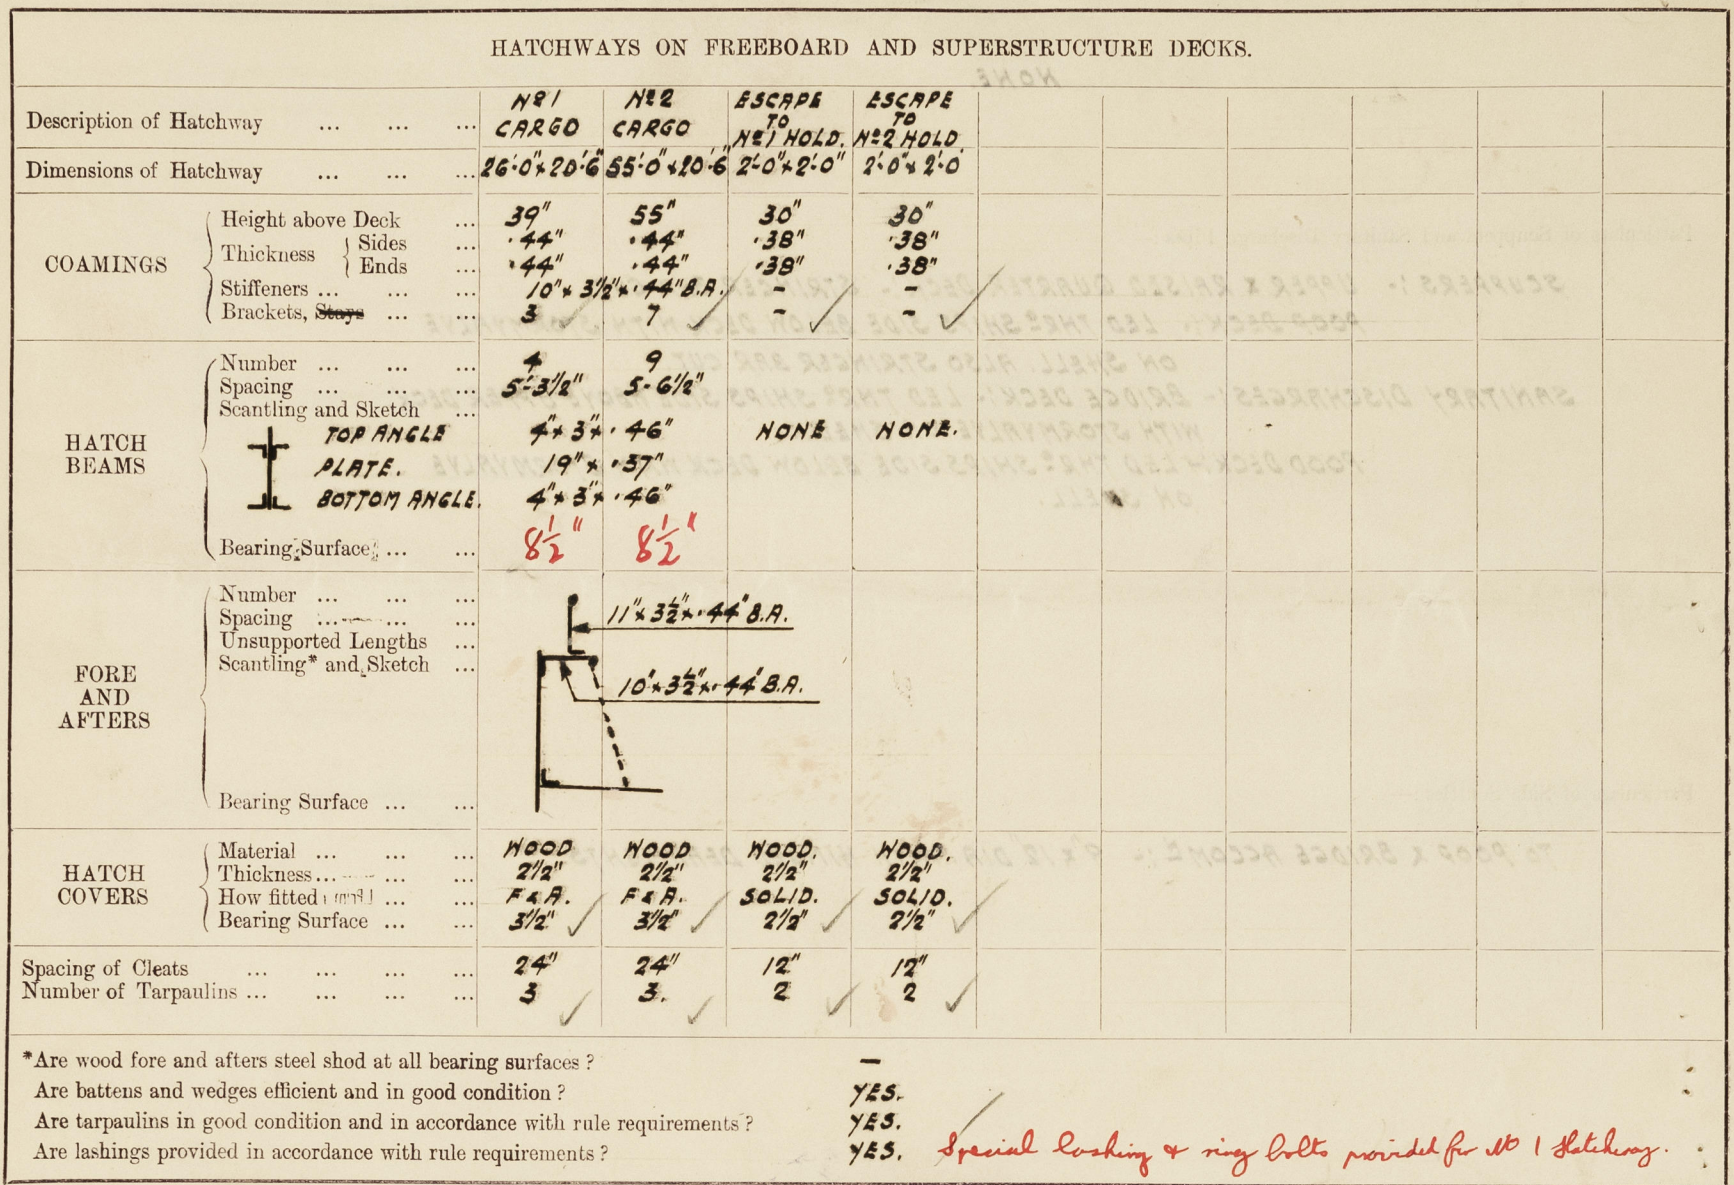 HATCHWAYS ON FREEBOARD AND SUPERSTRUCTURE DECKS.
Description of Hatchway ... ... ... Nº1 CARGO Nº2 CARGO ESCAPE TO Nº1 HOLD. ESCAPE TO Nº2 HOLD.
Dimensions of Hatchway ... ... ... 26'-0"x20'-6" 55'-0"x20'-6" 2'-0"x2'-0" 2'-0"x2'-0
COAMINGS
Height above Deck ... 39" 55" 30" 30"
Thickness Sides ... .44" .44" .38" .38"
Ends ... .44" .44" .38" .38"
Stiffeners ... ... ... 10"x3½"x.44" B.A. - -
Brackets, Stays ... ... 3 7 - -
HATCH BEAMS
Number ... ... ... 4 9
Spacing ... ... ... 5'-3½" 5-6½"
Scantling and Sketch ...
TOP ANGLE 4"x3"x.46" NONE NONE.
PLATE. 19"x.37"
BOTTOM ANGLE. 4"x3"x.46"
Bearing Surface ... ... 8½" 8½"
FORE AND AFTERS
Number ... ... ...
Spacing ... ... ...
Unsupported Lengths ...
Scantling* and Sketch ...
11"x3½"x.44" B.A.
10"x3½"x.44" B.A.
Bearing Surface ... ...
HATCH COVERS
Material ... ... ... WOOD WOOD WOOD. WOOD.
Thickness ... ... ... 2½" 2½" 2½" 2½"
How fitted ... ... F&A. F&A. SOLID. SOLID.
Bearing Surface ... ... 3½" 3½" 2½" 2½"
Spacing of Cleats ... ... ... ... 24" 24" 12" 12"
Number of Tarpaulins ... ... ... ... 3 3. 2 2
*Are wood fore and afters steel shod at all bearing surfaces ? —
Are battens and wedges efficient and in good condition ? YES.
Are tarpaulins in good condition and in accordance with rule requirements ? YES.
Are lashings provided in accordance with rule requirements ? YES. Special lashing & ring bolts provided for Nº 1 Hatchway.